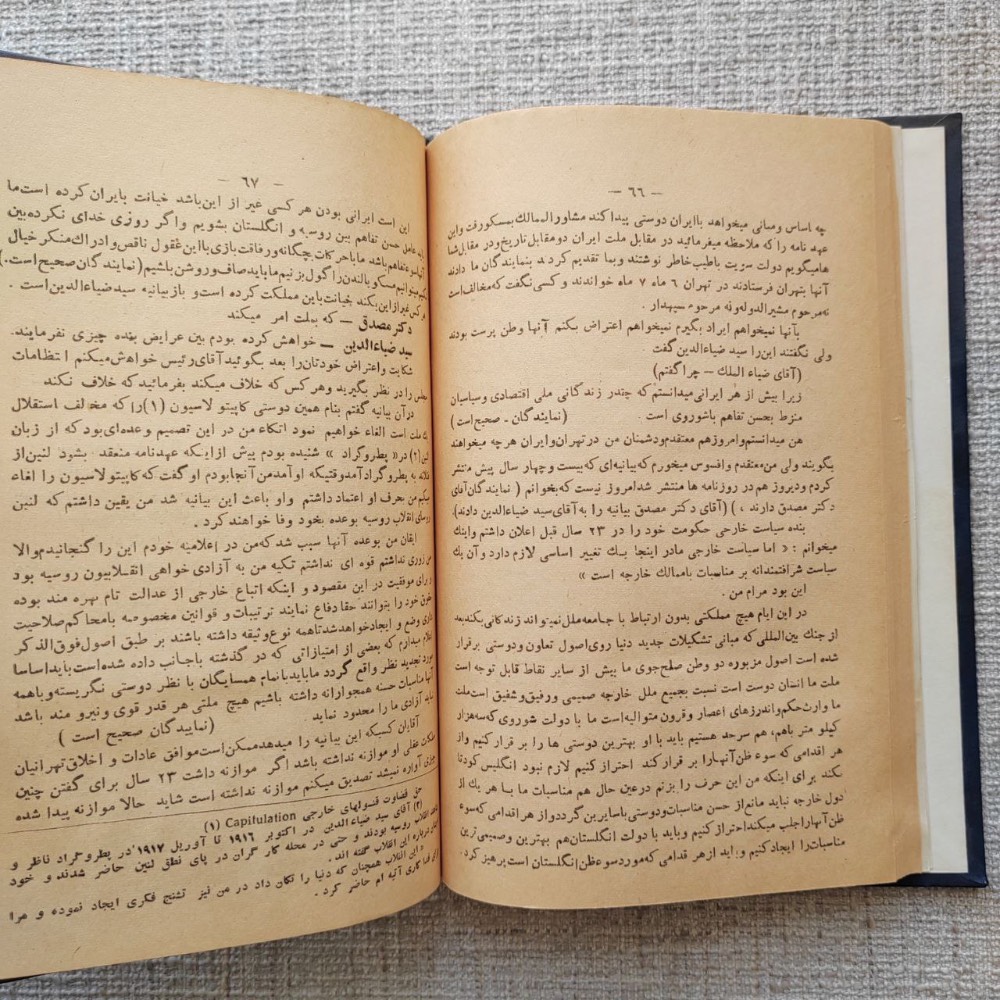 — ٦٦ —
چه اساس ومبانی میخواهد باایران دوستی پیدا کند مشاورالممالك بمسکورفت واین
عهد نامه را که ملاحظه میفرمائید در مقابل ملت ایران دومقابل تاریخ ودر مقابل شما
هامیگویم دولت سویت باطیب خاطر نوشتند وبما تقدیم کردند بنمایندگان ما دادند
آنها بتهران فرستادند در تهران ٦ ماه ٧ ماه خواندند و کسی نگفت که مخالف است
نه مرحوم مشیرالدوله ونه مرحوم سپهدار .
بآنها نمیخواهم ایراد بگیرم نمیخواهم اعتراض بکنم آنها وطن پرست بودند
ولی نگفتند این را سید ضیاءالدین گفت
(آقای ضیاء الملك — چرا گفتم)
زیرا بیش از هر ایرانی میدانستم که چقدر زندگانی ملی اقتصادی وسیاسیان
منوط بحسن تفاهم باشوروی است . (نمایندگان ـ صحیح است)
من میدانستم وامروزهم معتقدم ودشمنان من درتهران وایران هرچه میخواهند
بگویند ولی من معتقدم وافسوس میخورم که بیانیه ای که بیست و چهار سال پیش منتشر
کردم ودیروز هم در روزنامه ها منتشر شد امروز نیست که بخوانم ( نمایندگان آقای
دکتر مصدق دارند ، ) (آقای دکتر مصدق بیانیه را به آقای سید ضیاءالدین دادند).
بنده سیاست خارجی حکومت خود را در ٢٣ سال قبل اعلان داشتم واینك
میخوانم : « اما سیاست خارجی مادر اینجا یك تغییر اساسی لازم دارد و آن یك
سیاست شرافتمندانه بر مناسبات باممالك خارجه است »
این بود مرام من .
در این ایام هیچ مملکتی بدون ارتباط با جامعه ملل نمیتواند زندگانی بکند بعد
از جنك بین المللی که مبانی تشکیلات جدید دنیا روی اصول تعاون ودوستی برقرار
شده است اصول مزبوره دو وطن صلح جوی ما بیش از سایر نقاط قابل توجه است
ملت ما انسان دوست است نسبت بجمیع ملل خارجه صمیمی ورفیق وشفیق است ملت
ما وارث حکم واندرزهای اعصار وقرون متوالیه است ما با دولت شوروی که سه هزار
کیلو متر باهم، هم سرحد هستیم باید با او بهترین دوستی ها را بر قرار کنیم واز
هر اقدامی که سوء ظن آنها را بر قرار کند احتراز کنیم لازم نبود انگلیس کودتا
بکند برای اینکه من این حرف را بزنم درعین حال هم مناسبات ما با هر یك از
دول خارجه نباید مانع از حسن مناسبات ودوستی باسایرین گردد واز هر اقدامی که سوء
ظن آنها را جلب میکند احتراز کنیم وباید با دولت انگلستان هم بهترین وصمیمی ترین
مناسبات را ایجاد کنیم و باید از هر قدامی که مورد سوء ظن انگلستان است پرهیز کرد
— ٦٧ —
این است ایرانی بودن هر کسی غیر از این باشد خیانت بایران کرده است ما
باید عامل حسن تفاهم بین روسیه و انگلستان بشویم واگر روزی خدای نکرده بین
آنها سوء تفاهم باشد ما با حرکات بچگانه ورفاقت بازی بااین عقول ناقص وادراك منکر خیال
میتوانیم مسکو یالندن را گول بزنیم ما باید صاف وروشن باشیم (نمایندگان صحیح است.)
هر کس غیر از این بکند خیانت باین مملکت کرده است و باز بیانیه سید ضیاءالدین است .
دکتر مصدق — که بملت امر میکند
سید ضیاءالدین — خواهش کرده بودم بین عرایض بنده چیزی نفرمایند.
شکایت واعتراض خودتان را بعد بگوئید آقای رئیس خواهش میکنم انتظامات
مجلس را در نظر بگیرید وهر کس که خلاف میکند بفرمائید که خلاف نکند
در آن بیانیه گفتم بنام همین دوستی کاپیتولاسیون (١) را که مخالف استقلال
یك ملت است الغاء خواهیم نمود اتکاء من در این تصمیم وعده ای بود که از زبان
لنین (٢) در « پطروگراد » شنیده بودم پیش از اینکه عهدنامه منعقد بشود لنین از
به پطروگراد آمد وقتیکه او آمد من آنجا بودم او گفت که کاپیتولاسیون را الغاء
میکنم من بحرف او اعتماد داشتم واو باعث این بیانیه شد من یقین داشتم که لنین
روسای انقلاب روسیه بوعده بخود وفا خواهند کرد .
ایقان من بوعده آنها سبب شد که من در اعلامیه خودم این را گنجانیدم والا
من زوری نداشتم قوه ای نداشتم تکیه من به آزادی خواهی انقلابیون روسیه بود
و برای موفقیت در این مقصود و اینکه اتباع خارجی از عدالت تام بهره مند بوده
حقوق خود را بتوانند حقا دفاع نمایند ترتیبات و قوانین مخصوصه بامحاکم صلاحیت
داری وضع و ایجاد خواهد شد تا همه نوع وثیقه داشته باشند بر طبق اصول فوق الذکر
اعلام میدارم که بعضی از امتیازاتی که در گذشته باجانب داده شده است باید اساسا
مورد تجدید نظر واقع گردد ما باید با تمام همسایگان با نظر دوستی نگریسته وباهمه
آنها مناسبات حسنه همجوارانه داشته باشیم هیچ ملتی هر قدر قوی ونیرو مند باشد
نباید آزادی ما را محدود نماید (نمایندگان صحیح است )
آقایان کسیکه این بیانیه را میدهد ممکن است موافق عادات و اخلاق تهرانیان
ملکات عقلی او موازنه نداشته باشد اگر موازنه داشت ٢٣ سال برای گفتن چنین
چیزی آواره نمیشد تصدیق میکنم موازنه نداشته است شاید حالا موازنه پیدا شده
(١) Capitulation حق قضاوت قنسولهای خارجی
(٢) آقای سید ضیاءالدین در اکتوبر ١٩١٦ تا آوریل ١٩١٧ در پطروگراد ناظر و
شاهد انقلاب روسیه بودند و حتی در محله کارگران در پای نطق لنین حاضر شدند و خود
ایشان درباره این انقلاب گفته اند .
« این انقلاب همچنان که دنیا را تکان داد در من نیز تشنج فکری ایجاد نموده و مرا
برای فدا کاری آتیه ام حاضر کرد .